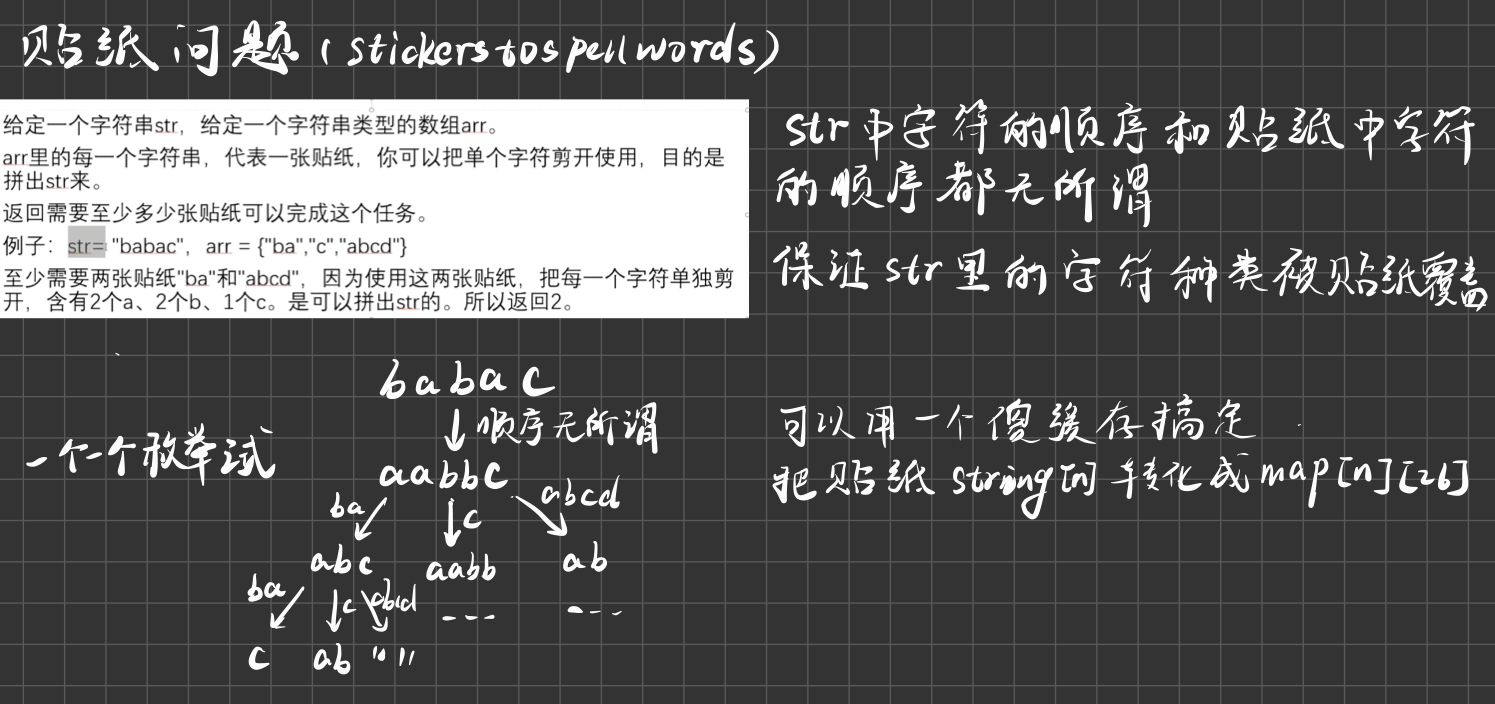 贴纸问题（stickerstospellwords）
给定一个字符串str，给定一个字符串类型的数组arr。
arr里的每一个字符串，代表一张贴纸，你可以把单个字符剪开使用，目的是
拼出str来。
返回需要至少多少张贴纸可以完成这个任务。
例子：str= "babac"，arr = {"ba","c","abcd"}
至少需要两张贴纸"ba"和"abcd"，因为使用这两张贴纸，把每一个字符单独剪
开，含有2个a、2个b、1个c。是可以拼出str的。所以返回2。
str中字符的顺序和贴纸中字符
的顺序都无所谓
保证str里的字符种类被贴纸覆盖
babac
顺序无所谓
一个一个枚举试
aabbc
ba c abcd
abc aabb ab
ba c abcd --- ---
c ab ""
可以用一个傻缓存搞定
把贴纸string[n]转化成map[n][26]